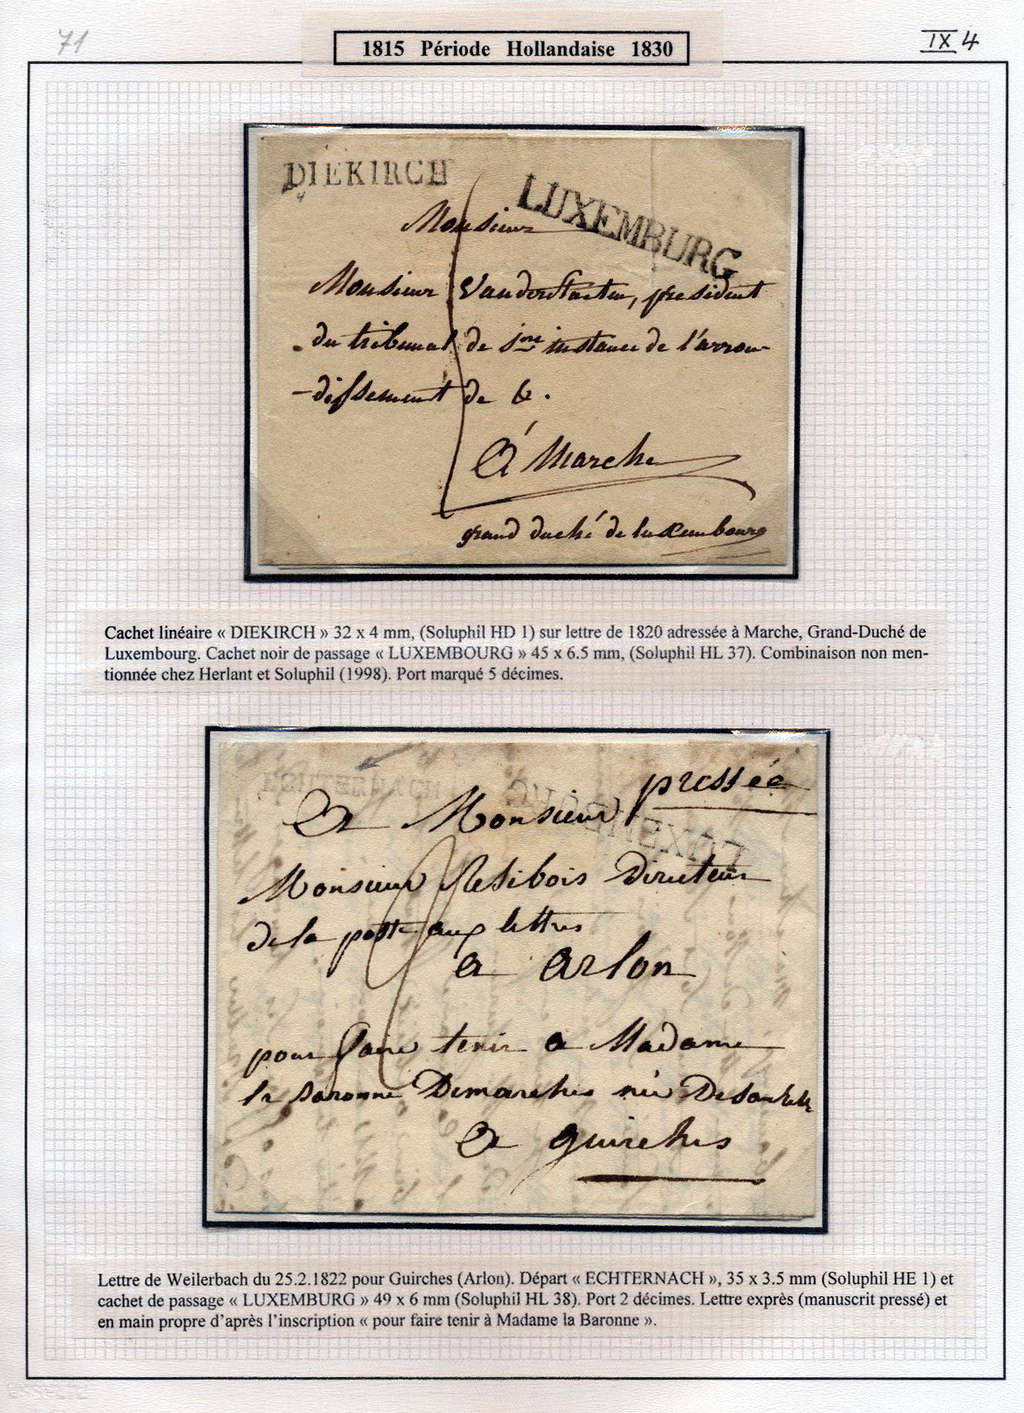 71
IX 4
1815 Période Hollandaise 1830
DIEKIRCH
LUXEMBURG
Monsieur
Monsieur Vanderstraeten, président
du tribunal de 1ere instance de l'arron-
-dissement de &.
à Marche
grand duché de luxembourg
Cachet linéaire « DIEKIRCH » 32 x 4 mm, (Soluphil HD 1) sur lettre de 1820 adressée à Marche, Grand-Duché de
Luxembourg. Cachet noir de passage « LUXEMBOURG » 45 x 6.5 mm, (Soluphil HL 37). Combinaison non men-
tionnée chez Herlant et Soluphil (1998). Port marqué 5 décimes.
ECHTERNACH
LUXEMBOURG
pressée
A Monsieur
Monsieur Resibois Directeur
de la poste aux lettres
a arlon
pour faire tenir a Madame
la Baronne Demarches née
A guirches
Lettre de Weilerbach du 25.2.1822 pour Guirches (Arlon). Départ « ECHTERNACH », 35 x 3.5 mm (Soluphil HE 1) et
cachet de passage « LUXEMBURG » 49 x 6 mm (Soluphil HL 38). Port 2 décimes. Lettre exprès (manuscrit pressé) et
en main propre d'après l'inscription « pour faire tenir à Madame la Baronne ».